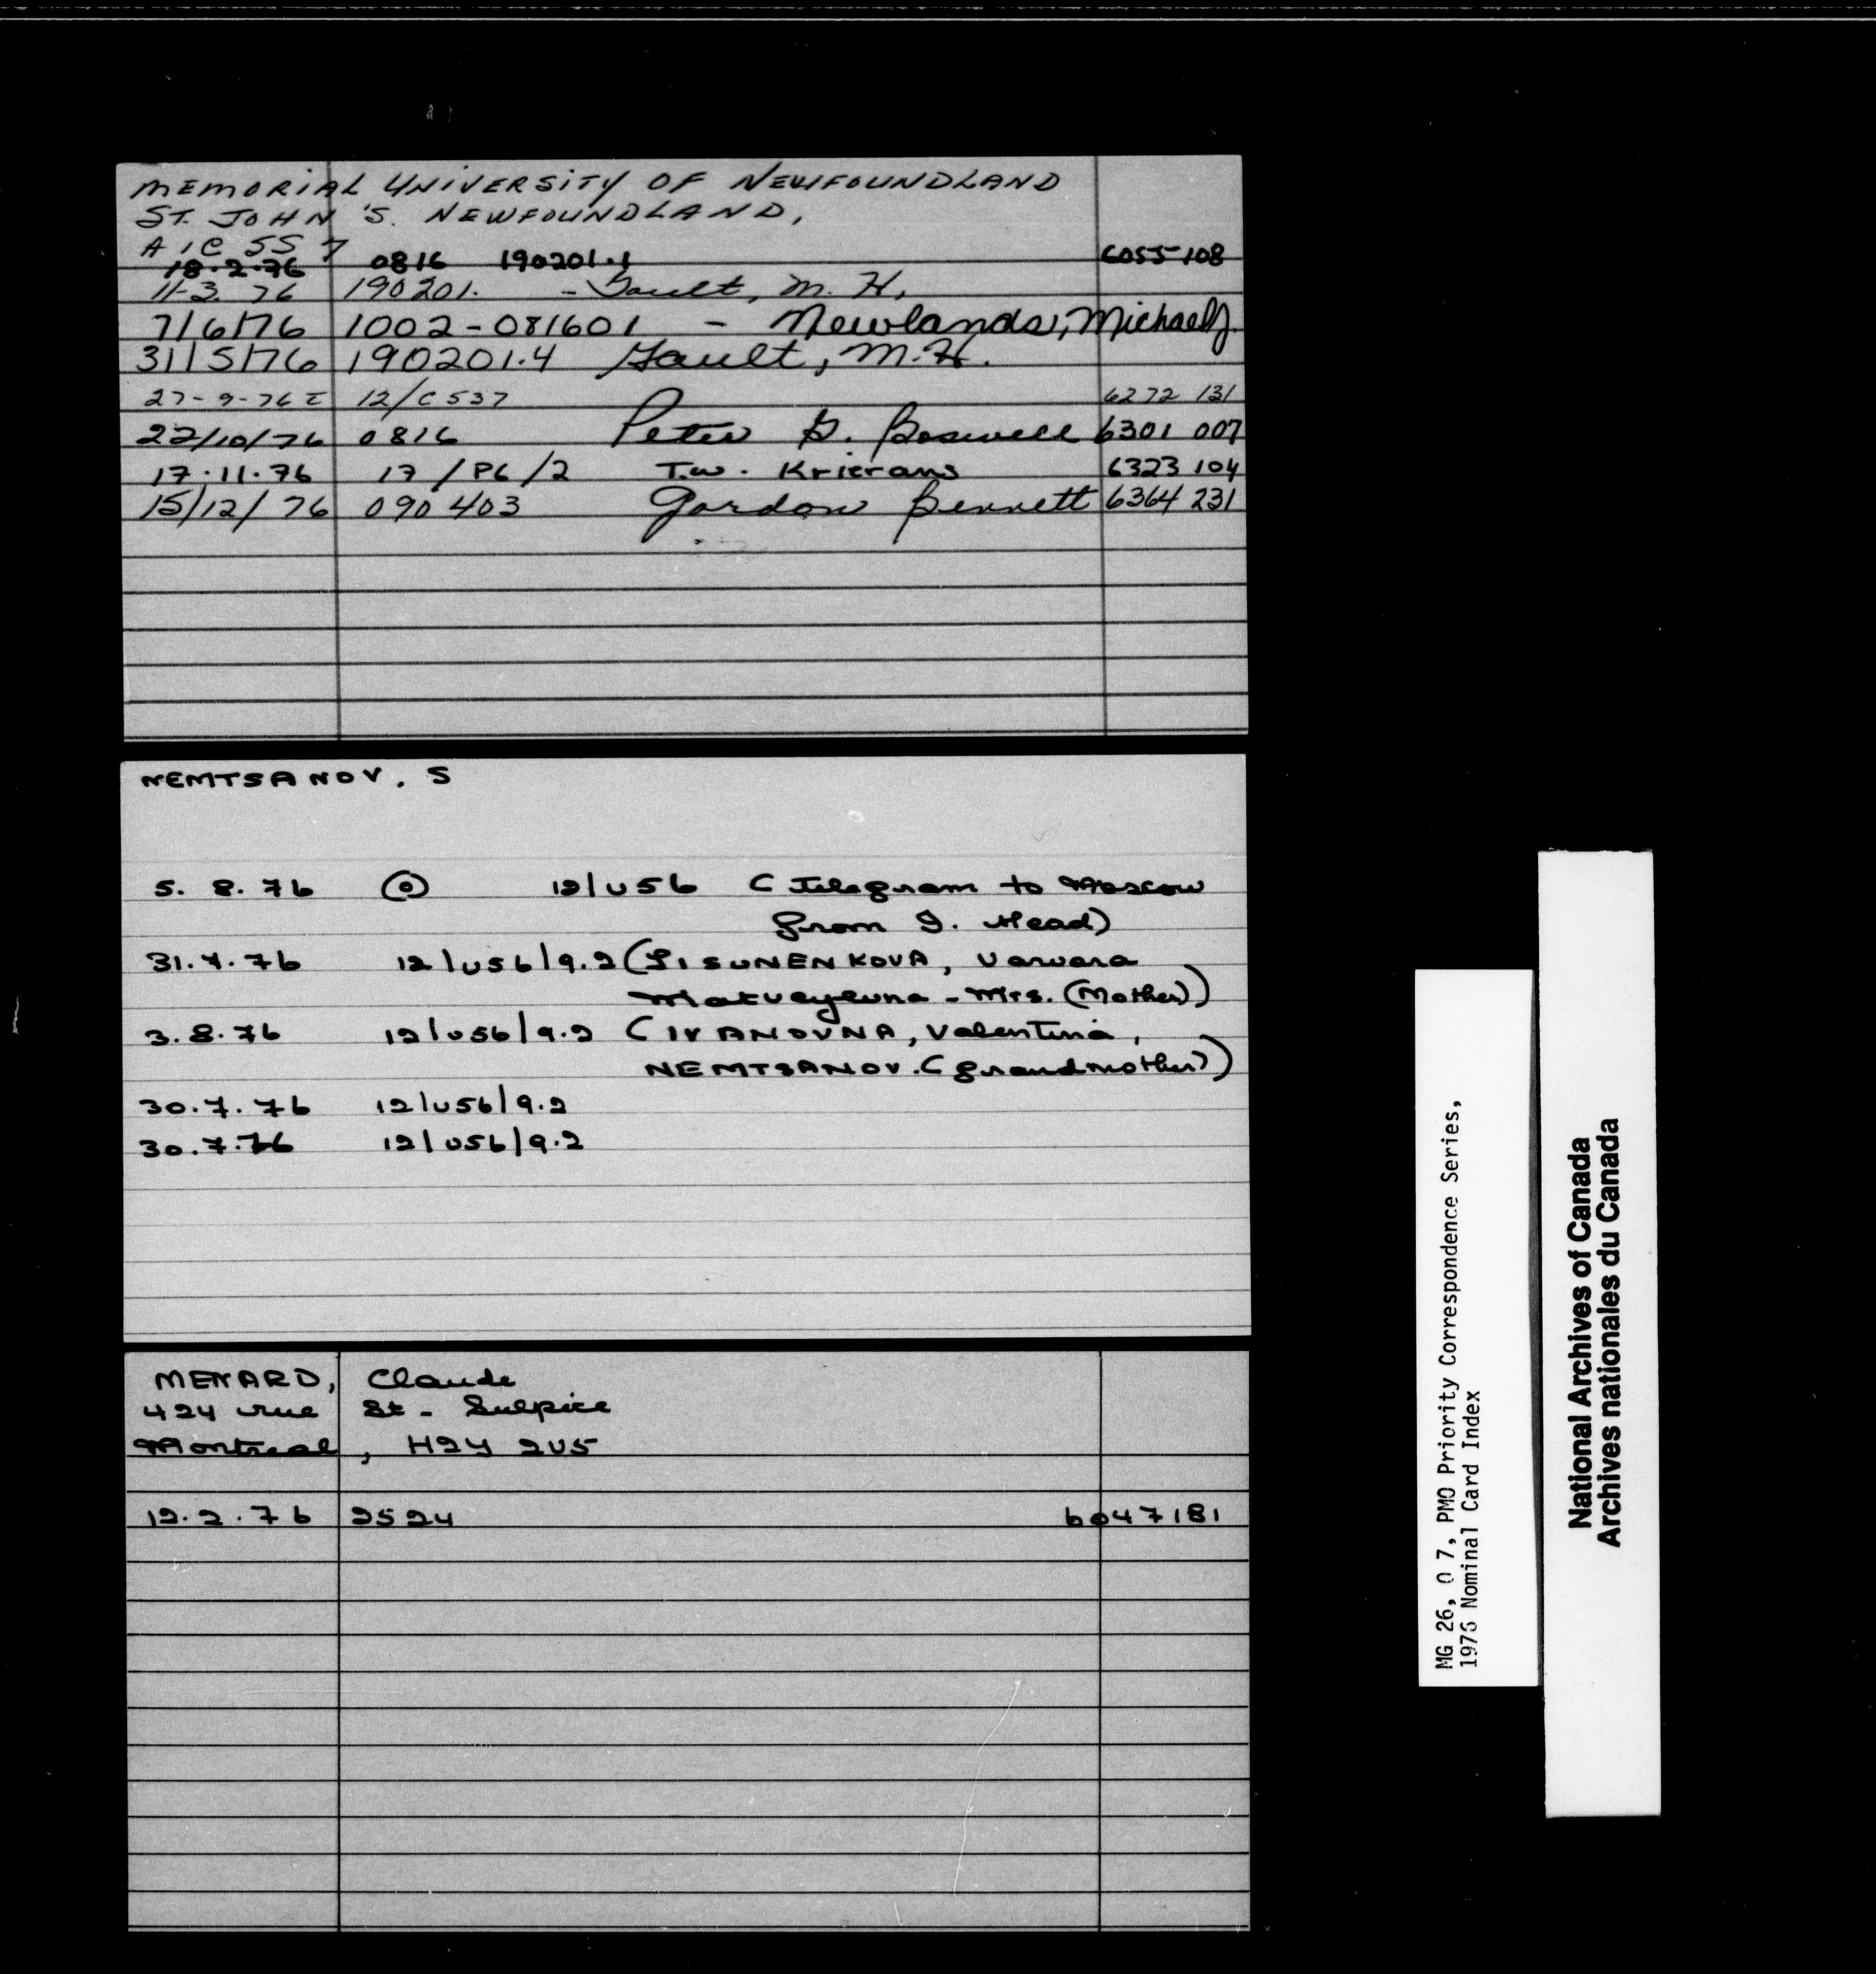 MEMORIAL UNIVERSITY OF NEWFOUNDLAND
ST. JOHN'S. NEWFOUNDLAND,
A1C 5S7
18.2.76 0816 190201.1 6055-108
11-3 76 190201. - Gault, M. H.
7/6/76 1002-081601 - Newlands, Michael J.
31/5/76 190201.4 Gault, M.H.
27-9-76 12/C537 6272 131
22/10/76 0816 Peter G. Boswell 6301 007
17.11.76 17/P6/2 T.W. Krierans 6323 104
15/12/76 090403 Gordon Bennett 6364 231
NEMTSANOV. S
5. 8. 76 12/U56 (Telegram to Moscow
from I. Head)
31.7.76 12/U56/9.2 (LISUNENKOVA, Varvara
Matveyevna - Mrs. (Mother))
3.8.76 12/U56/9.2 (IVANOVNA, Valentina,
NEMTSANOV. (grandmother))
30.7.76 12/U56/9.2
30.7.76 12/U56/9.2
MENARD, Claude
424 rue St-Sulpice
Montreal, H2Y 2V5
12.2.76 2524 6047181
MG 26, O 7, PMO Priority Correspondence Series,
1976 Nominal Card Index
National Archives of Canada
Archives nationales du Canada